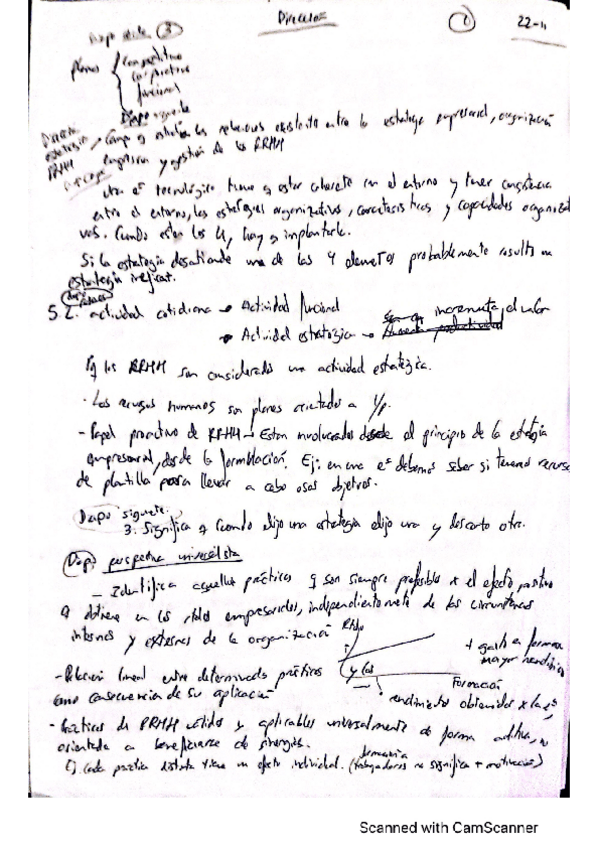 Dirección
1
22-11
3
planes
Competitivo
Corporativo
funcional
Dapo siguiente
Dirección
estratégica
RRHH
existente entre la estrategia empresarial, organización
y gestión de los RRHH
una eª tecnológica, tiene q estar coherente con el entorno y tener consistencia
entre el entorno, las estrategias organizativas, características y capacidades organizati
vas. Cuando estén los 4, hay q implantarla.
Si la estrategia desatiende uno de los 4 elementos probablemente resulta en
estrategia ineficaz.
5.2. actividad cotidiana → Actividad funcional
→ Actividad estratégica → incrementa el valor
Pq los RRHH son considerado una actividad estratégica.
- Los recursos humanos son planes orientados a l/p.
- Papel proactivo de RRHH → Están involucrados desde el principio de la estrategia
empresarial, desde la formulación. Ej: en una eª debemos saber si tenemos recursos
de plantilla para llevar a cabo esos objetivos.
Dapo siguiente.
3. Significa q cuando elijo una estrategia elijo una y descarto otra.
Dapo perspectiva universalista
- Identifica aquellas prácticas q son siempre preferibles x el efecto positivo
q obtiene en los rtdos empresariales, independientemente de las circunstancias
internas y externas de la organización
Rtdo
+ gasto en formación
mayor rendimiento
- Relación lineal entre determinada prácticas
y los
Formación
como consecuencia de su aplicación
rendimiento obtenidos x la eª
- Prácticas de RRHH válidas y aplicables universalmente de forma aditiva, no
orientada a beneficiarse de sinergias.
cada práctica distinta tiene un efecto individual. (trabajadores no significa + motivación)
Scanned with CamScanner